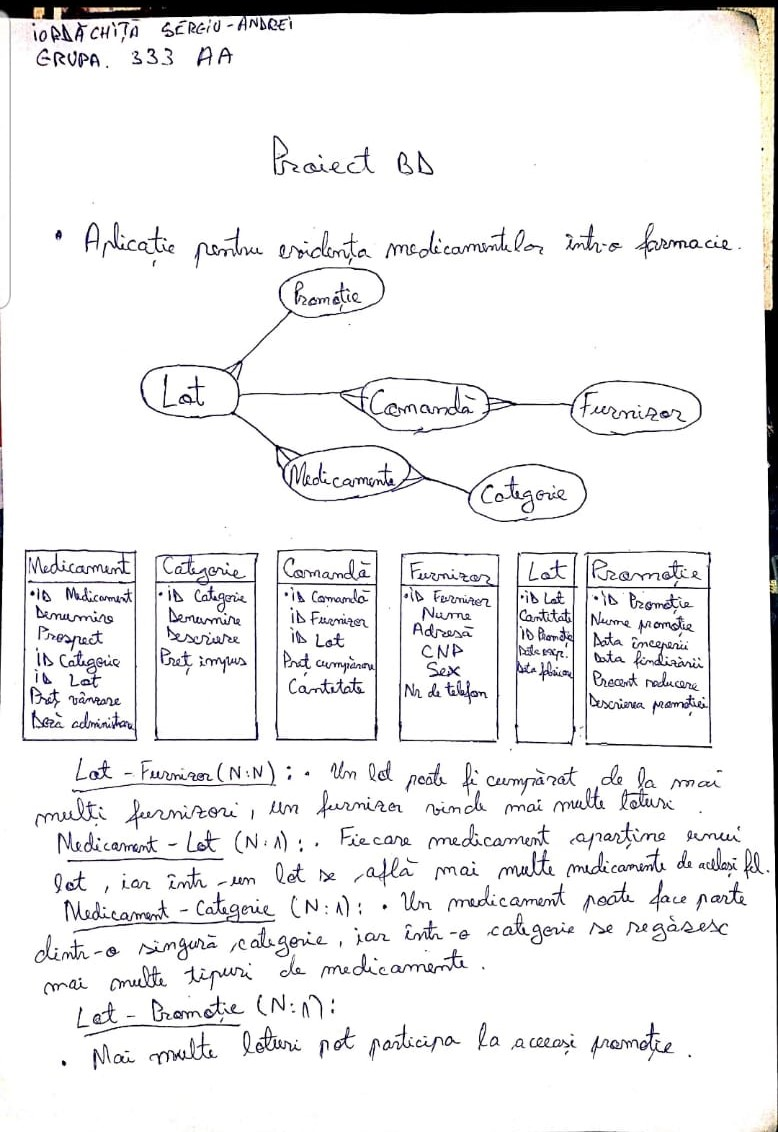 IORDĂCHIȚĂ SERGIU-ANDREI
GRUPA. 333 AA
Proiect BD
• Aplicație pentru evidența medicamentelor într-o farmacie.
Promoție
Lot
Comandă
Furnizor
Medicamente
Categorie
Medicament
•ID Medicament
Denumire
Prospect
ID Categorie
ID Lot
Preț vânzare
Doză administrare
Categorie
•ID Categorie
Denumire
Descriere
Preț impus
Comandă
•ID Comandă
ID Furnizor
ID Lot
Preț cumpărare
Cantitate
Furnizor
•ID Furnizor
Nume
Adresă
CNP
Sex
Nr de telefon
Lot
•ID Lot
Cantitate
ID Promoție
Data exp.
Data fabricare
Promoție
•ID Promoție
Nume promoție
Data începerii
Data finalizării
Procent reducere
Descrierea promoției
Lot - Furnizor (N:N) : • Un lot poate fi cumpărat de la mai
mulți furnizori, un furnizor vinde mai multe loturi.
Medicament - Lot (N:1) : • Fiecare medicament aparține unui
lot, iar într-un lot se află mai multe medicamente de același fel.
Medicament - Categorie (N:1) : • Un medicament poate face parte
dintr-o singură categorie, iar într-o categorie se regăsesc
mai multe tipuri de medicamente.
Lot - Promoție (N:1) :
• Mai multe loturi pot participa la aceeași promoție.